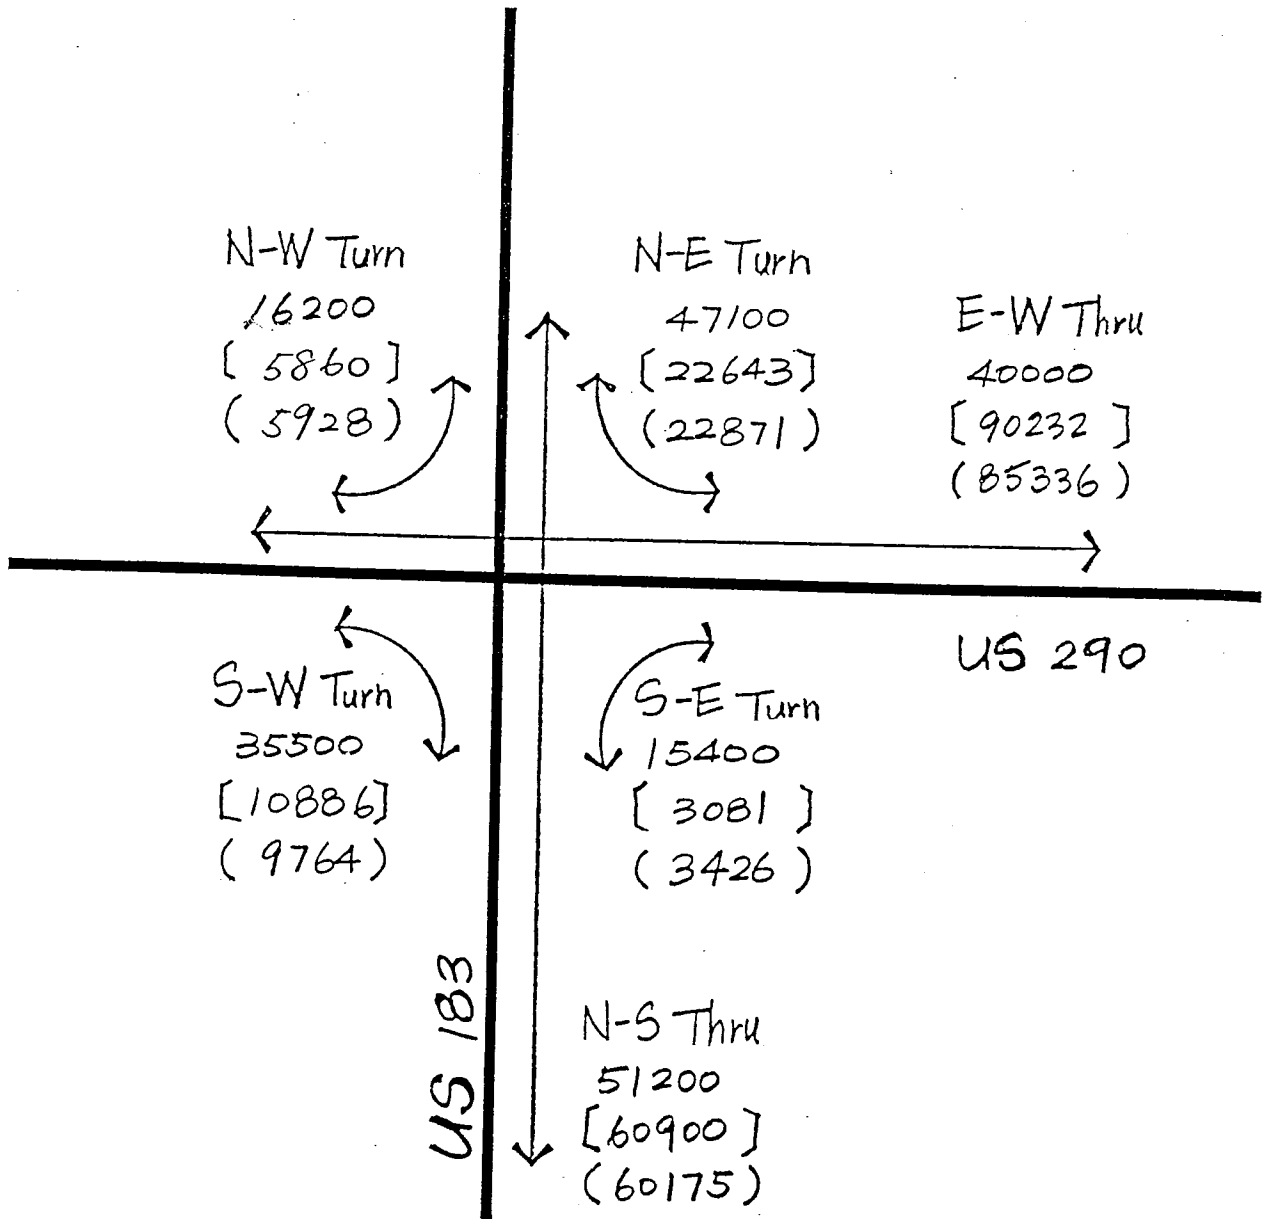 N-W Turn
16200
[ 5860 ]
( 5928 )
N-E Turn
47100
[22643]
(22871)
E-W Thru
40000
[90232]
(85336)
US 290
S-W Turn
35500
[10886]
( 9764)
S-E Turn
15400
[ 3081 ]
( 3426 )
US 183
N-S Thru
51200
[60900]
(60175)